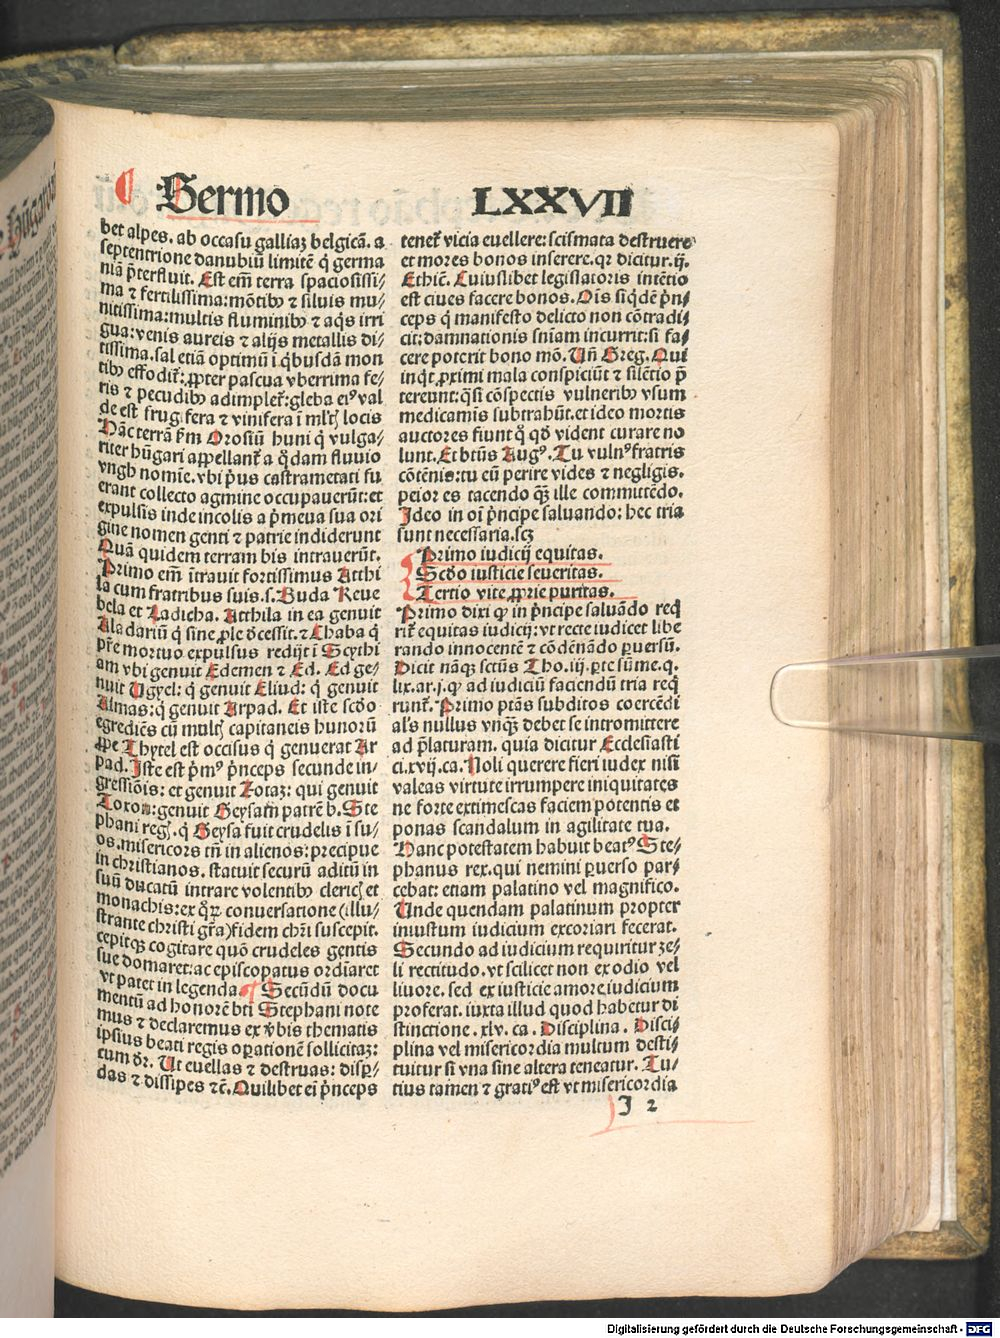 Sermo LXXVII
bet alpes. ab occasu galliaʒ belgicā. a
septentrione danubiū limitē q̇ germa
niā p̄terfluit. Est em̄ terra spaciosissi⸗
ma ⁊ fertilissima: mōtibꝰ ⁊ siluis mu⸗
nitissima: multis fluminibꝰ ⁊ aq̇s irri
gua: venis aureis ⁊ alijs metallis di⸗
tissima. sal etiā optimū ī q̇busdā mon
tibꝰ effodit᷑: ꝓpter pascua vberrima fe⸗
ris ⁊ pecudibꝰ adimplet᷑: gleba eiꝰ val
de est frugifera ⁊ vinifera ī ml̓tꝭ locis
Hāc terrā ẜm Orosiū huni q̇ vulga⸗
riter hūgari appellant᷑ a q̊dam fluuio
vngh nomīe. vbi p̓us castrametati fu
erant collecto agmine occupauerūt: et
expulsis inde incolis a p̓meua sua ori
gine nomen genti ⁊ patrie indiderunt
Quā quidem terram bis intrauerūt.
Primo em̄ ītrauit fortissimus Atthi
la cum fratribus suis. s. Buda Reue
bela et Kadicha. Atthila in ea genuit
Aladariū q̇ sine ꝓle decessit. ⁊ Chaba q̇
pr̄e mortuo expulsus redijt ī Scythi
am vbi genuit Edemen ⁊ Ed. Ed ge⸗
nuit Ugyel: q̇ genuit Eliud: q̇ genuit
Almas: q̇ genuit Arpad. Et iste scd̓o
egrediēs cū multꝭ capitaneis hunorū
ꝓpe Thytel est occisus q̇ genuerat Ar
pad. Iste est p̓mꝰ p̓nceps secunde in⸗
gressiōis: et genuit Zotaʒ: qui genuit
Toxon: genuit Geysam̄ patrē b. Ste
phani regꝭ. q̇ Geysa fuit crudelis ī su⸗
os. misericors tn̄ in alienos: precipue
in christianos. statuit securū aditū in
suū ducatū intrare volentibꝰ clericꝭ et
monachis: ex q̊ꝝ conuersatione (illu⸗
strante christi gr̄a) fidem chr̄i suscepit.
cepitqꝫ cogitare quō crudeles gentis
sue domaret: ac episcopatus ordīaret
vt patet in legenda. ¶ Secūdū docu
mentū ad honorē bti Stephani note
mus ⁊ declaremus ex v̓bis thematis
ipsius beati regis oꝑationē sollicitaʒ:
cum dr̄. Ut euellas ⁊ destruas: disꝑ⸗
das ⁊ dissipes ⁊c̄. Quilibet ei p̓nceps
tenet᷑ vicia euellere: scismata destruere
et mores bonos inserere. qꝛ dicitur .ij.
Ethic̄. Cuiuslibet legislatoris intētio
est ciues facere bonos. Oīs siq̇dē p̓n⸗
ceps q̇ manifesto delicto non cōtradi⸗
cit: damnationis sn̄iam incurrit: si fa⸗
cere poterit bono mō. Un̄ Greg. Qui
inq̇t ꝓximi mala conspiciūt ⁊ silētio p̄
tereunt: q̄si cōspectis vulneribꝰ vsum
medicamis subtrahūt. et ideo mortis
auctores fiunt q̇ qd̓ vident curare no
lunt. Et btūs Augꝰ. Tu vulnꝰ fratris
cōtēnis: tu eū perire vides ⁊ negligis.
peior es tacendo q̄ȝ ille committēdo.
Ideo in oī p̓ncipe saluando: hec tria
sunt necessaria. scȝ
Primo iudicij equitas.
Scd̓o iusticie seueritas.
Tertio vite ꝓprie puritas.
Primo dixi ꝙ in p̓ncipe saluādo req̇
rit᷑ equitas iudicij: vt recte iudicet libe
rando innocentē ⁊ cōdēnādo ꝑuersū.
Dicit nāqꝫ sctūs Tho. iij. ꝑte sūme. q.
lix. ar. j. ꝙ ad iudiciū faciendū tria req̇
runt᷑. Primo ptās subditos coercēdi
al̓s nullus vnqȝ debet se intromittere
ad p̄laturam. quia dicitur Ecclesiasti
ci. xvij. ca. Noli querere fieri iudex nisi
valeas virtute irrumpere iniquitates
ne forte extimescas faciem potentis et
ponas scandalum in agilitate tua.
Hanc potestatem habuit beatꝰ Ste⸗
phanus rex. qui nemini ꝑuerso par⸗
cebat: etiam palatino vel magnifico.
Unde quendam palatinum propter
iniustum iudicium excoriari fecerat.
Secundo ad iudicium requiritur ze⸗
li rectitudo. vt scilicet non ex odio vel
liuore. sed ex iusticie amore iudicium
proferat. iuxta illud quod habetur di
stinctione. xlv. ca. Disciplina. Disci⸗
plina vel misericordia multum desti⸗
tuitur si vna sine altera teneatur. Tu⸗
tius tamen ⁊ gratiꝰ est vt misericordia
I 2
Digitalisierung gefördert durch die Deutsche Forschungsgemeinschaft - DFG